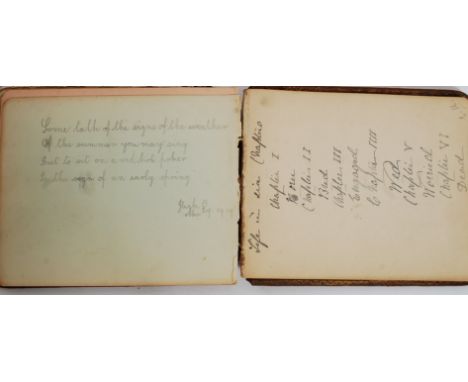 Some talk of the signs of the weather
Of the summer you may sing
But to sit on a red hot poker
Is the sign of an early spring
Hugh
Life in six Chapters
Chapter I
Born
Chapter II
Bred
Chapter III
Engaged
Chapter IIII
Wed
Chapter V
Worried
Chapter VI
Dead